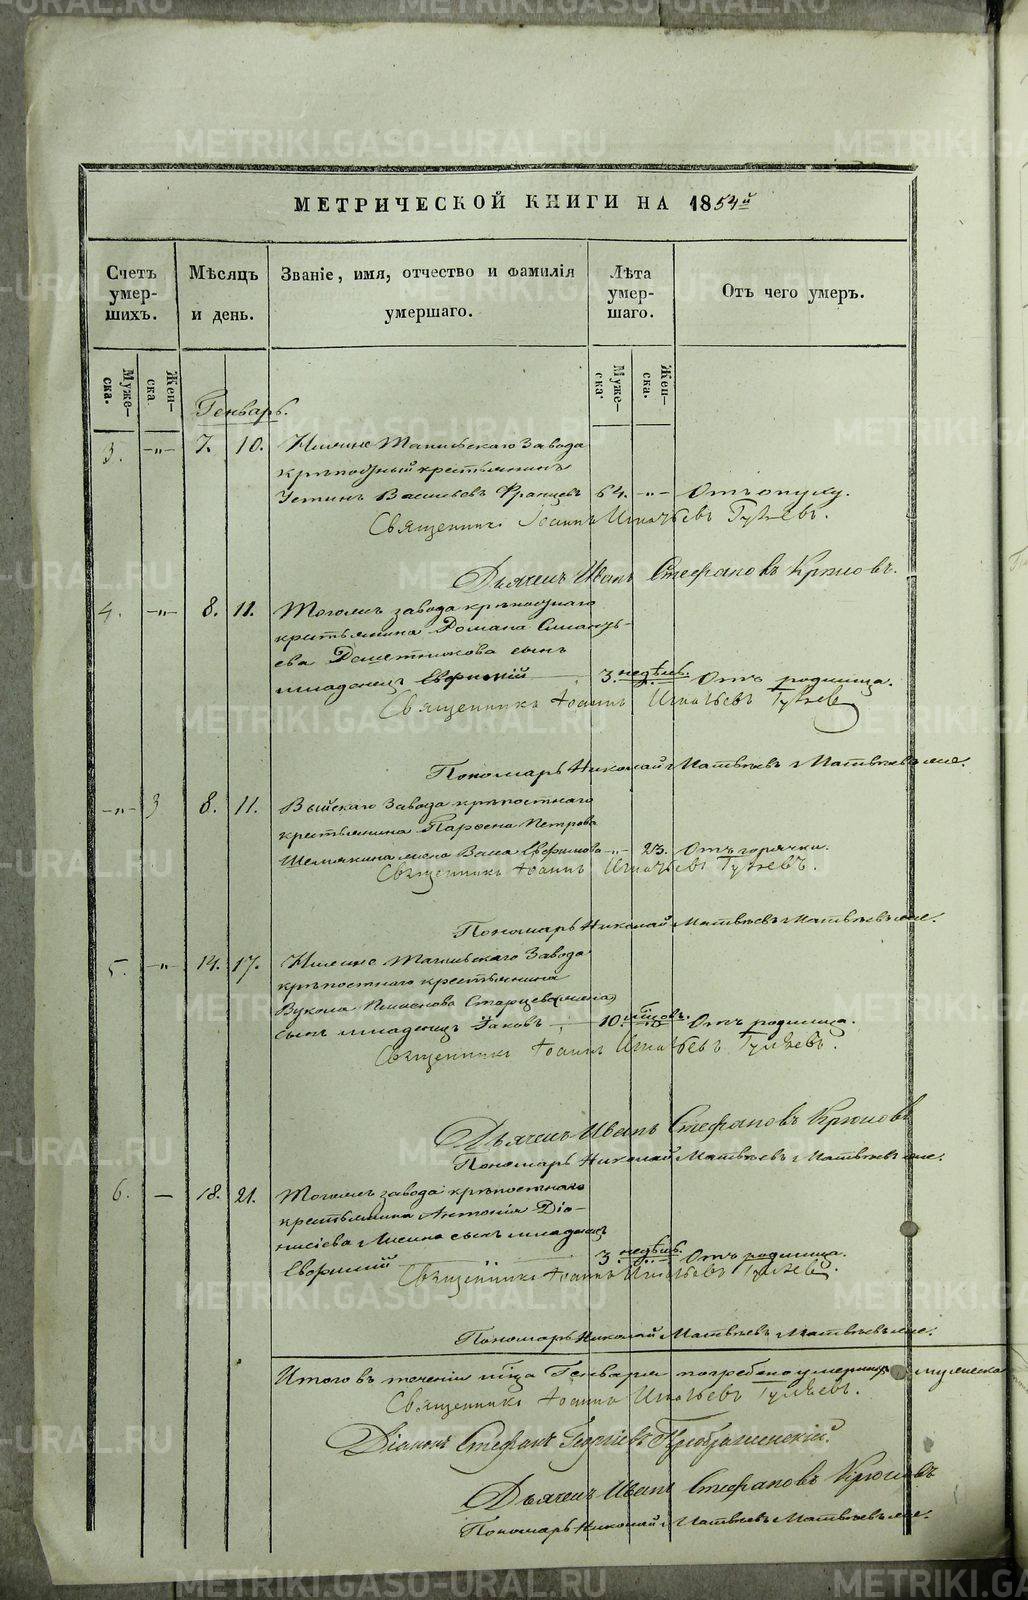 МЕТРИЧЕСКОЙ КНИГИ НА 1854й
Счетъ умер-шихъ.
Мѣсяцъ и день.
Званіе, имя, отчество и фамилія умершаго.
Лѣта умер-шаго.
Отъ чего умеръ.
Муже-ска.
Жен-ска
Муже-ска.
Жен-ска.
Генварь.
3. -„- 7. 10. Нижне Тагильскаго Завода
крѣпостный крестьянинъ
Устинъ Васильевъ 64. -„- Отъ опуху.
Священникъ Іоаннъ Игнатьевъ Гуляевъ.
Дьячекъ Иванъ Стефановъ Крюковъ.
4. -„- 8. 11. Тогожъ завода крѣпостнаго
крестьянина Романа
сынъ
младенецъ Евфимій 3. недѣль. Отъ родимца.
Священникъ Іоаннъ Игнатьевъ Гуляев
Пономарь Николай Матвѣевъ
-„- 3 8. 11. Выйскаго Завода крѣпостнаго
крестьянина Парѳена Петрова
Шемякина жена Васса Евфимова -„- 23. Отъ горячки.
Священникъ Іоаннъ Игнатьевъ Гуляевъ.
Пономарь Николай Матвѣевъ
5. -„- 14. 17. Нижне Тагильскаго Завода
крѣпостнаго крестьянина
Вукола Старцева
сынъ младенецъ Іаковъ 10. мѣсцовъ. Отъ родимца.
Священникъ Іоаннъ Игнатьевъ Гуляевъ.
Дьячекъ Иванъ Стефановъ Крюковъ
Пономарь Николай Матвѣевъ
6. — 18. 21. Тогожъ завода крѣпостнаго
крестьянина Антонія Діо-
нисіева сынъ младенецъ
Евфимій 3. недѣль. Отъ родимца.
Священникъ Іоаннъ Игнатьевъ Гуляевъ.
Пономарь Николай Матвѣевъ
Итого въ теченіи мѣца Генваря погребено умершихъ мужеска
Священникъ Іоаннъ Игнатьевъ Гуляевъ.
Діаконъ Стефанъ Георгіевъ Преображенскій.
Дьячекъ Иванъ Стефановъ Крюковъ
Пономарь Николай Матвѣевъ
METRIKI.GASO-URAL.RU